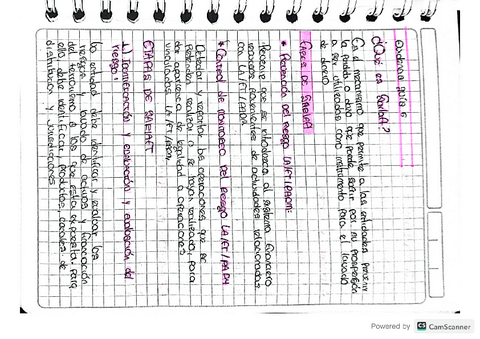 Evidencia guía 6
¿Qué es Sarlaft?
Es el mecanismo que permite a las entidades prevenir
la pérdida o daño que puede sufrir por su propensión
a ser utilizadas como instrumento para el lavado
de activos
FASES DE SARLAFT
* Prevención del riesgo LA/FT/PADM:
Prevenir que se introduzca al sistema financiero
recursos provenientes de actividades relacionadas
con LA/FT/PADM
* Control del riesgo LA/FT/PADM
Detectar y reportar las operaciones que se
pretendan realizar o se hayan realizado, para
dar apariencia de legalidad a operaciones
vinculadas LA/FT/PADM.
ETAPAS DE SARLAFT
1) Identificación y evaluación del
riesgo:
La entidad debe identificar y evaluar los
riesgos lavado de activos y financiación
del terrorismo a los que está expuesta. Para
ello, debe identificar, productos, canales de
distribución y jurisdicciones
Powered by CS CamScanner